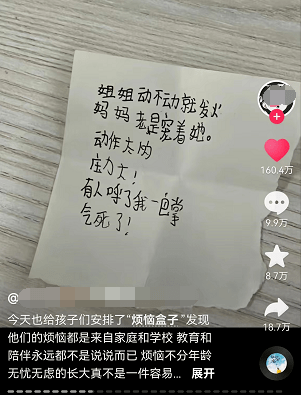 姐姐动不动就发火
妈妈老是宠着她。
动作太肉
压力大!
有人呼了我一巴掌
气死了!
160.4万
9.9万
8.7万
18.7万
@
今天也给孩子们安排了“烦恼盒子”发现
他们的烦恼都是来自家庭和学校 教育和
陪伴永远都不是说说而已 烦恼不分年龄
无忧无虑的长大真不是一件容易... 展开